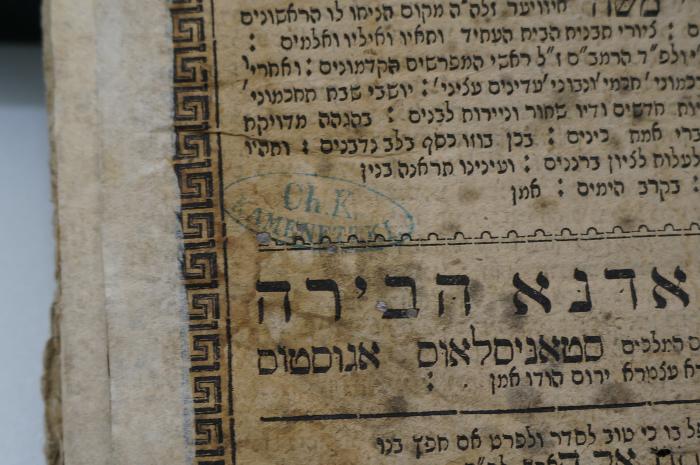 משה חיזוועץ זלה״ה מקום הניחו לו הראשונים
ם : ציורי תבנית הבית העתיד וחאיו ואיליו ואלמים :
יולפ״ד הרמב״ם ז״ל ראשי המפרשים הקדמונים : ואחרי׳
כמוני׳ חכמי׳ ונבוני׳ עדינים עליני׳ : יושבי שבת תחכמוני׳
ות חדשים ודיו שחור וניירות לבנים : בהגהה מדויקת
ברי אמת כינים : בכן בוזו כסף בלב נדבנים : ותהיו
לעלות לציון ברננים : ועינינו תראנה בנין
: בקרב הימים : אמן
Ch. K.
KAMENETZKI
אדנא הבירה
ם המלכים סטאניסלאוס אגוסטוס
א עצמרא ירום הודו אמן :
ל בו כי טוב לסדר ולפרט אם חפץ בנו